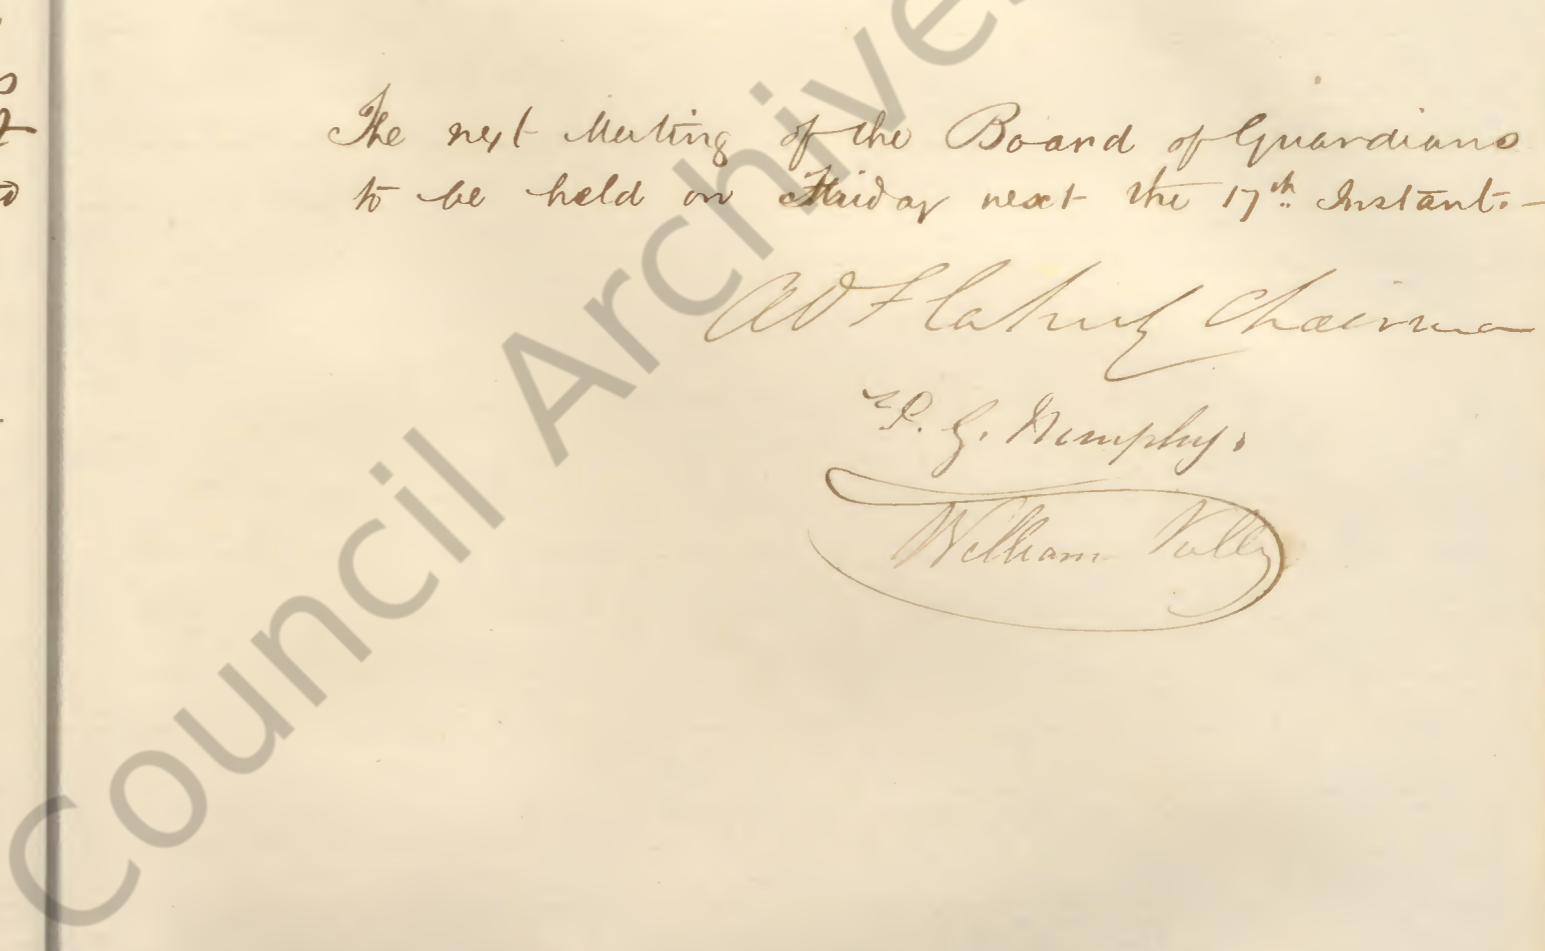 The next Meeting of the Board of Guardians
to be held on Friday next the 17th Instant. –
A O Flaherty Chairman
P. G. Dunphy.
William
Council Archives